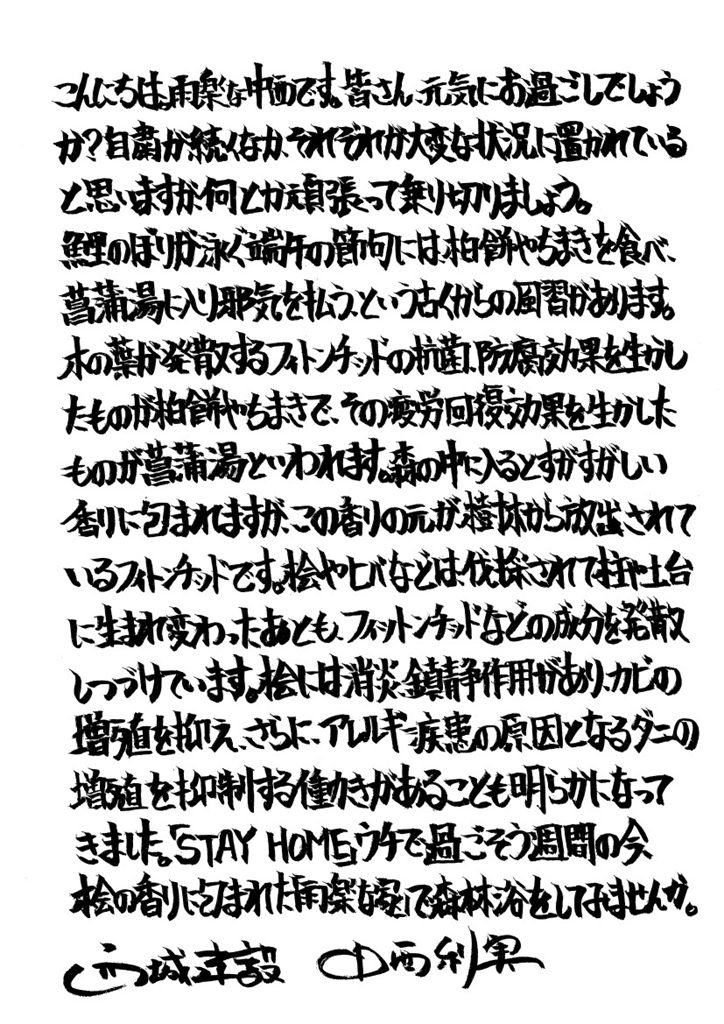 こんにちは。雨楽な中西です。皆さん、元気にお過ごしでしょう
か?自粛が続くなか、それぞれが大変な状況に置かれている
と思いますが、何とか頑張って乗り切りましょう。
鯉のぼりが泳ぐ端午の節句には、柏餅やちまきを食べ、
菖蒲湯に入り邪気を払う、という古くからの風習があります。
木の葉が発散するフィトンチッドの抗菌、防腐効果を生かし
たものが柏餅やちまきで、その疲労回復効果を生かした
ものが菖蒲湯といわれます。森の中に入るとすがすがしい
香りに包まれますが、この香りの元が、樹林から放出されて
いるフィトンチッドです。桧やヒバなどは、伐採されて柱や土台
に生まれ変わったあとも、フィットンチッドなどの成分を発散
しつづけています。桧には消炎、鎮静作用があり、カビの
増殖を抑え、さらに、アレルギー疾患の原因となるダニの
増殖を抑制する働きがあることも明らかになって
きました。「STAY HOME」ウチで過ごそう週間の今、
桧の香りに包まれた「雨楽な家」で森林浴をしてみませんか。
中西利実